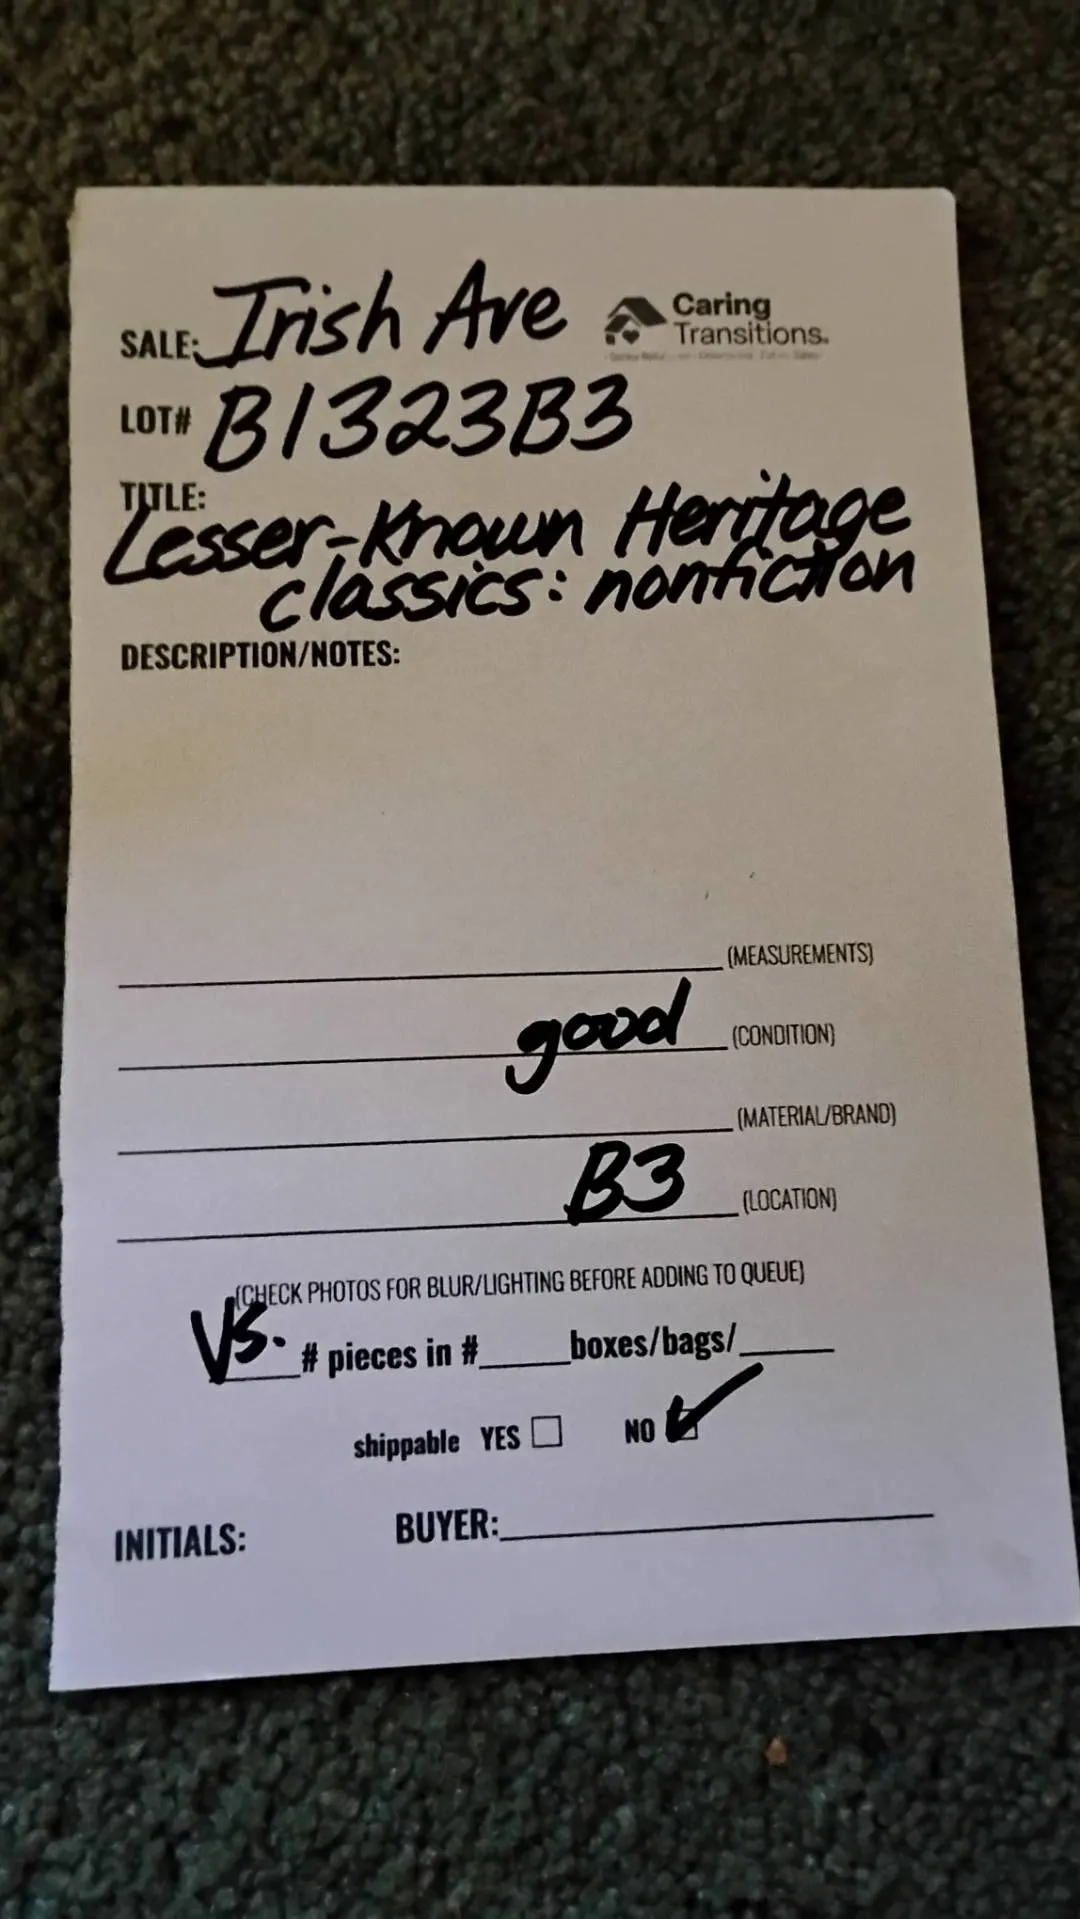 SALE: Irish Ave
Caring
Transitions.
LOT# B1323B3
TITLE:
Lesser-Known Heritage
classics: nonfiction
DESCRIPTION/NOTES:
(MEASUREMENTS)
good (CONDITION)
(MATERIAL/BRAND)
B3 (LOCATION)
(CHECK PHOTOS FOR BLUR/LIGHTING BEFORE ADDING TO QUEUE)
VS. # pieces in #____boxes/bags/____
shippable YES NO
INITIALS: BUYER: